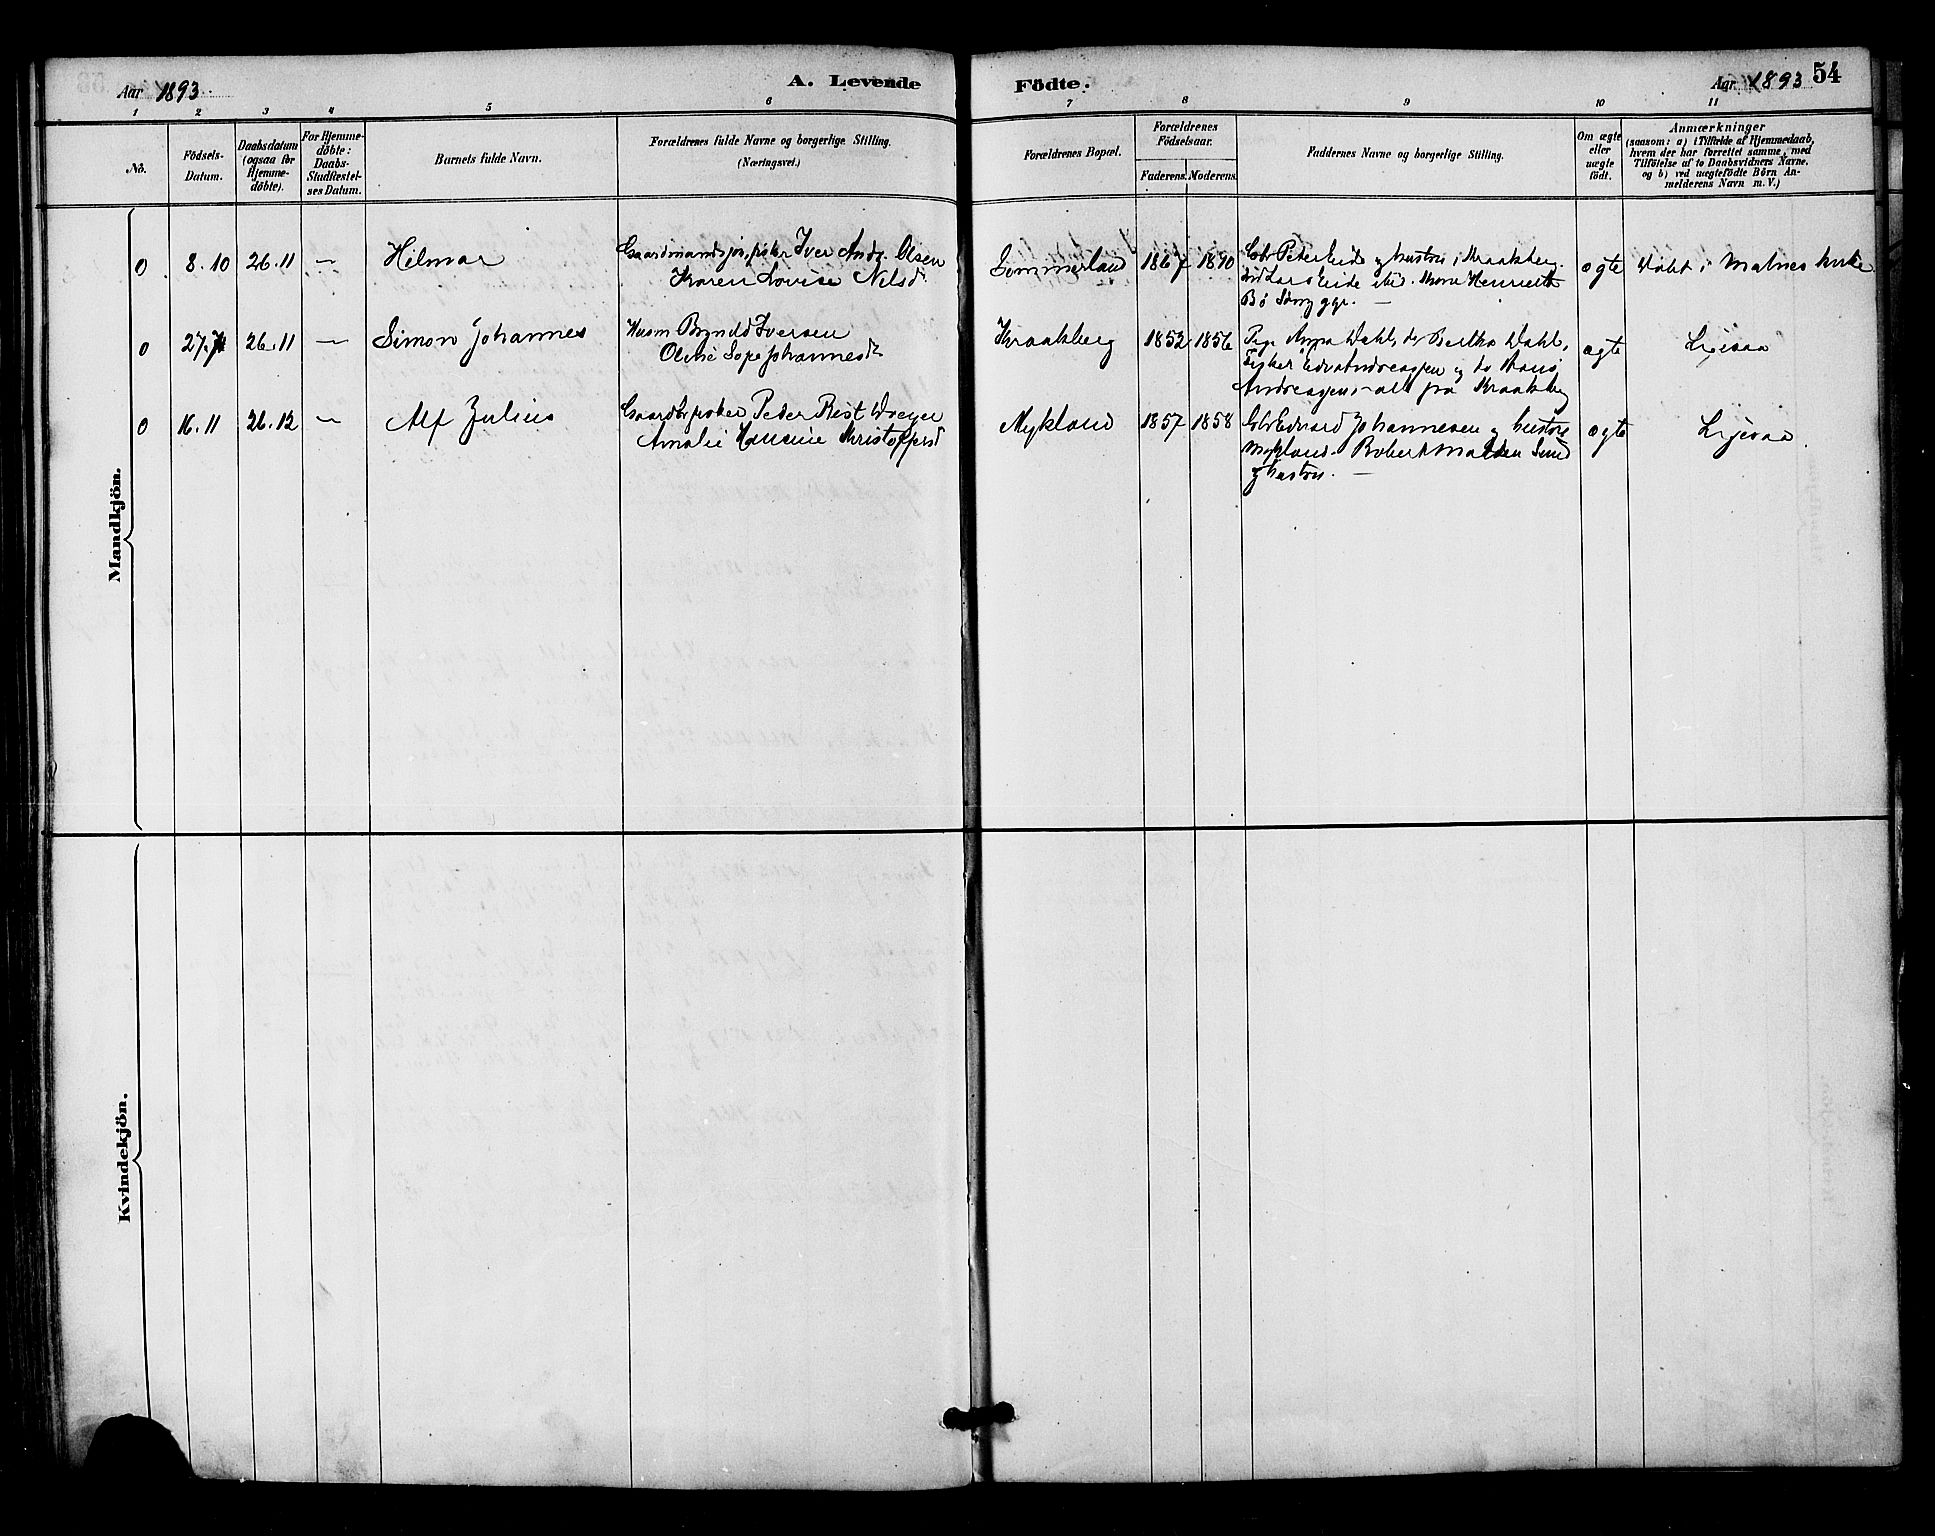 Aar 1893
A. Levende
Födte.
Aar 1893 54
1 2 3 4 5 6 7 8 9 10 11
No.
Födsels-
Datum.
Daabsdatum
(ogsaa for
Hjemme-
döbte).
For Hjemme-
döbte:
Daabs-
Stadfæstel-
ses Datum.
Barnets fulde Navn.
Forældrenes fulde Navne og borgerlige Stilling.
(Næringsvei.)
Forældrenes Bopæl.
Forældrenes
Födselsaar.
Faderens. Moderens.
Faddernes Navne og borgerlige Stilling.
Om ægte
eller
uægte
födt.
Anmærkninger
(saasom: a) i Tilfælde af Hjemmedaab,
hvem der har forrettet samme, med
Tilföielse af to Daabsvidners Navne.
og b) ved uægtefödte Börn An-
melderens Navn m. V.)
Mandkjön.
0 8.10 26.11 — Hilmar
Gaardmands Iver Andr. Olsen
Karen Lovise Nilsd.
Sommerland 1867 1890
Peter Eide og hustru i Kraakberg.
Lars Eide
Bö
ægte
Döbt i Malnes kirke
0 27. 26.11 — Simon Johannes
Husm Iversen
Johannesd
Kraakberg 1852 1856
Pige Anna Dahl, do Bertha Dahl,
Fisker Andreassen og do Hans
Andreassen, alt fra Kraakberg
ægte
Ligesaa
0 16.11 26.12 — Alf Julius
Peder Rist Dreyer
Amalie Hansine Kristoffersd
Mykland 1857 1858
Edvard Johannesen og hustru
Mykland. Robert Madsen Sund
og hustru. —
ægte
Ligesaa.
Kvindekjön.